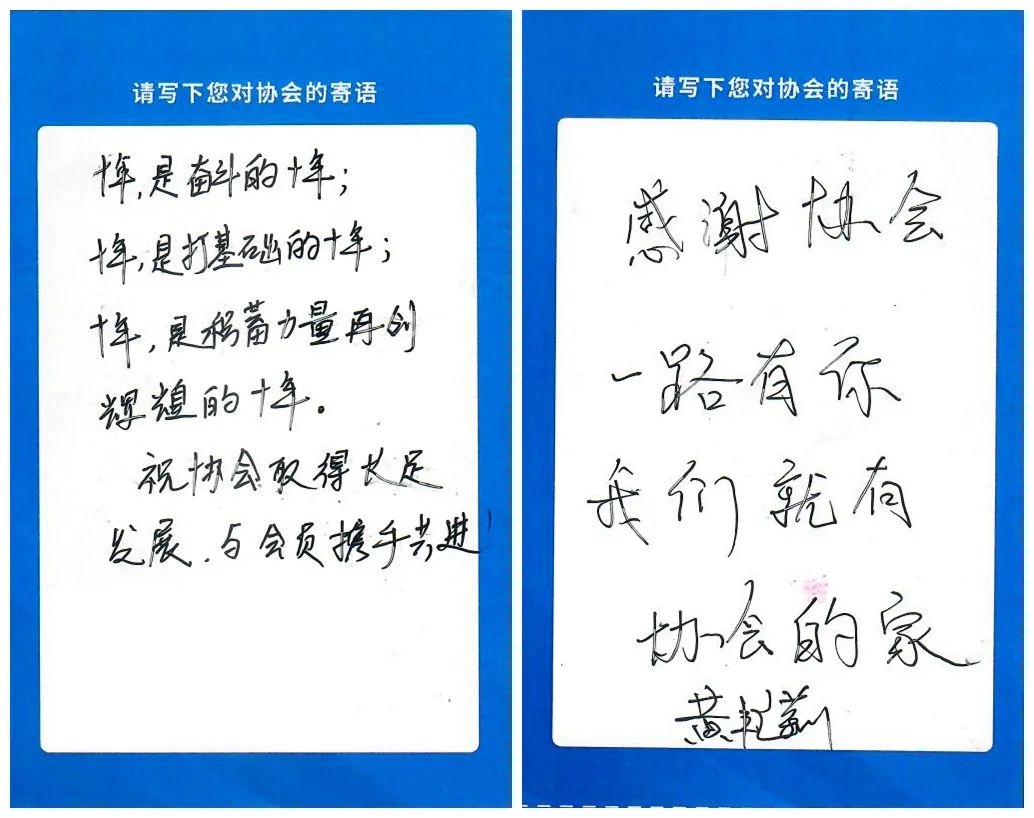 请写下您对协会的寄语
十年,是奋斗的十年;
十年,是打基础的十年;
十年,是积蓄力量再创
辉煌的十年。
祝协会取得长足
发展、与会员携手共进!
请写下您对协会的寄语
感谢协会
一路有你
我们就有
协会的家
黄